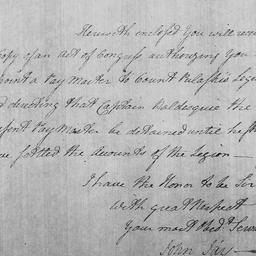 Herewith enclosed You will receive
Copy of an Act of Congress authorizing You
point a Pay Master to Count Pulaskis Legion
d directing that Captain Baldesquie the
sent Pay Master be detained until he sh
ve settled the Accounts of the Legion—
I have the Honor to be Sir
With great Respect
Your most Obed.t Serv
John Jay—